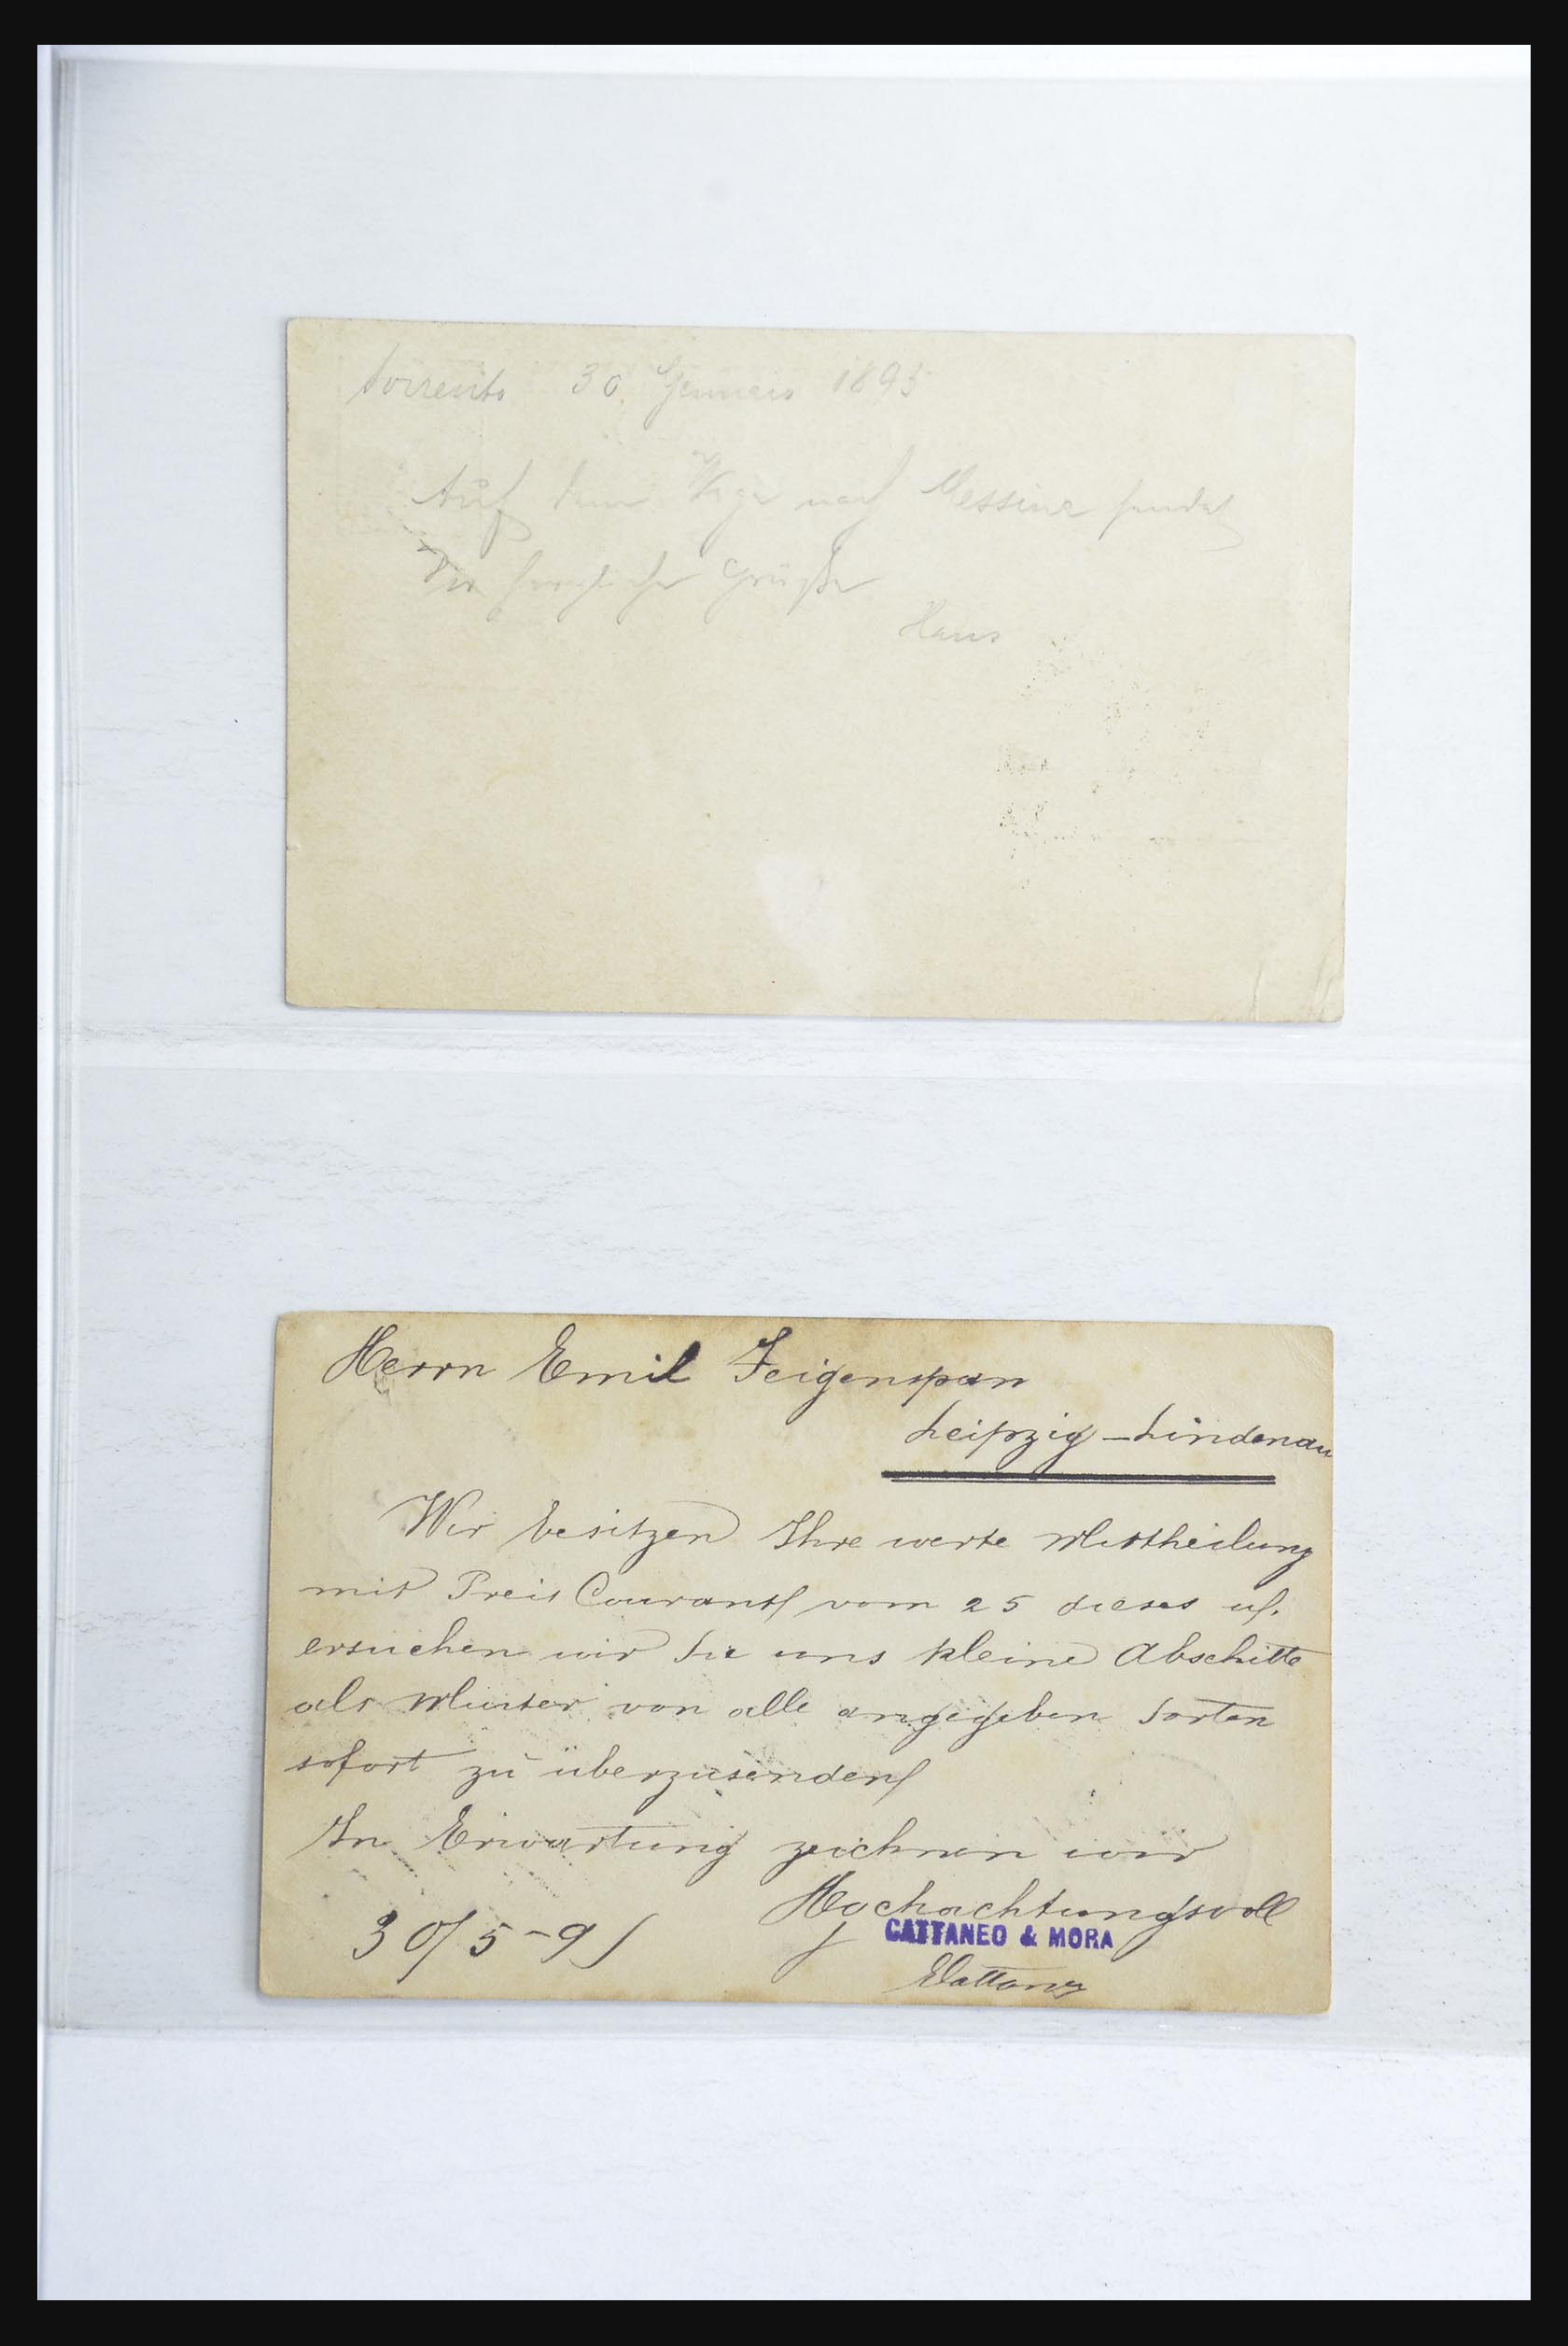 Sorrento 30 Gennaio 1895
Auf dem Wege nach Messina sendet
Dir herzliche Grüße
Hans
Herrn Emil Feigenspan
Leipzig-Lindenau
Wir besitzen Ihre werte Mittheilung
mit Preis Courant vom 25 dieses
ersuchen wir Sie uns kleine Abschitte
als Muster von alle angegeben Sorten
sofort zu überzusenden
In Erwartung zeichnen wir
Hochachtungsvoll
CATTANEO & MORA
30/5-91